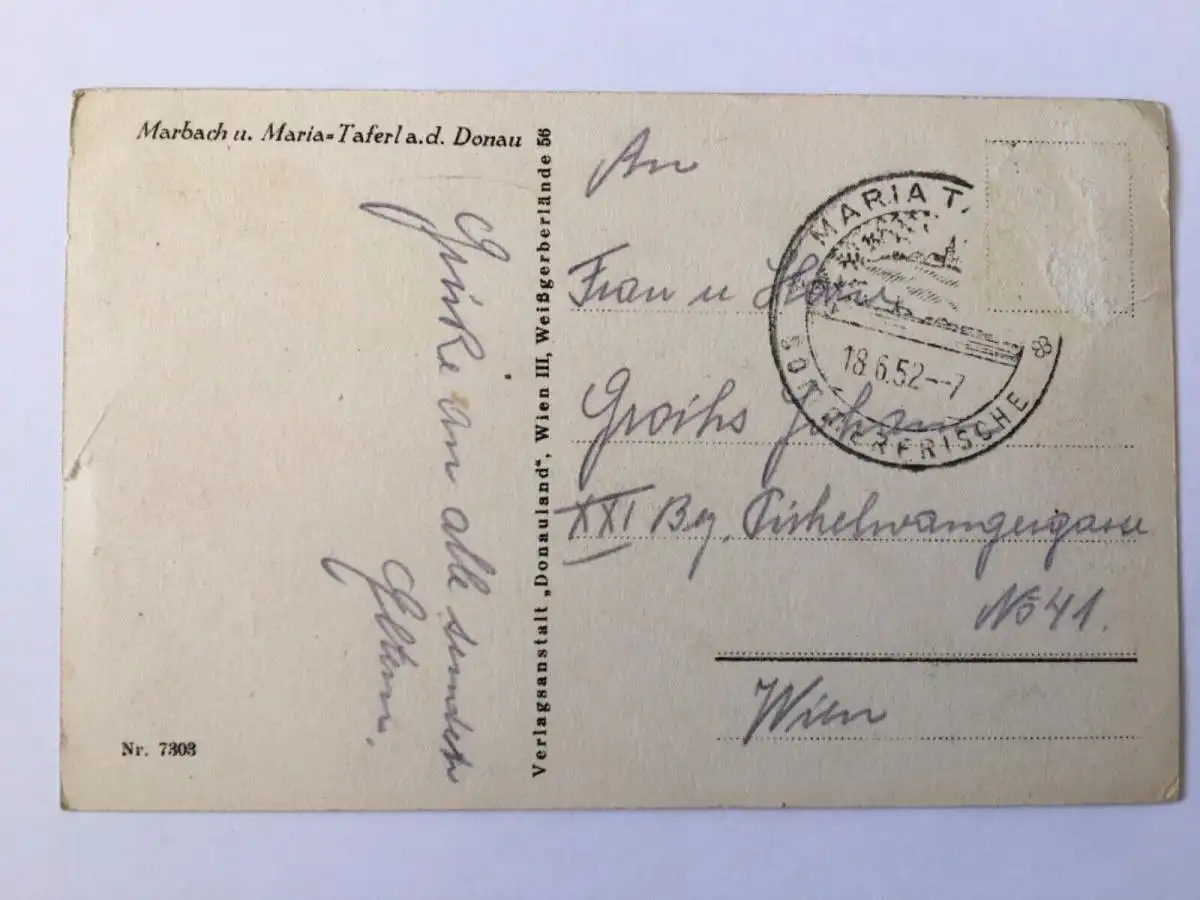 Marbach u. Maria-Taferl a.d. Donau
Grüße an alle sendet
Eltern.
Nr. 7303
Verlagsanstalt „Donauland“, Wien III, Weißgerberlände 56
An
Frau u Herr
Groihs Johann
XXI Bez.
No 41.
Wien
MARIA T.
18.6.52--7
SOMMERFRISCHE